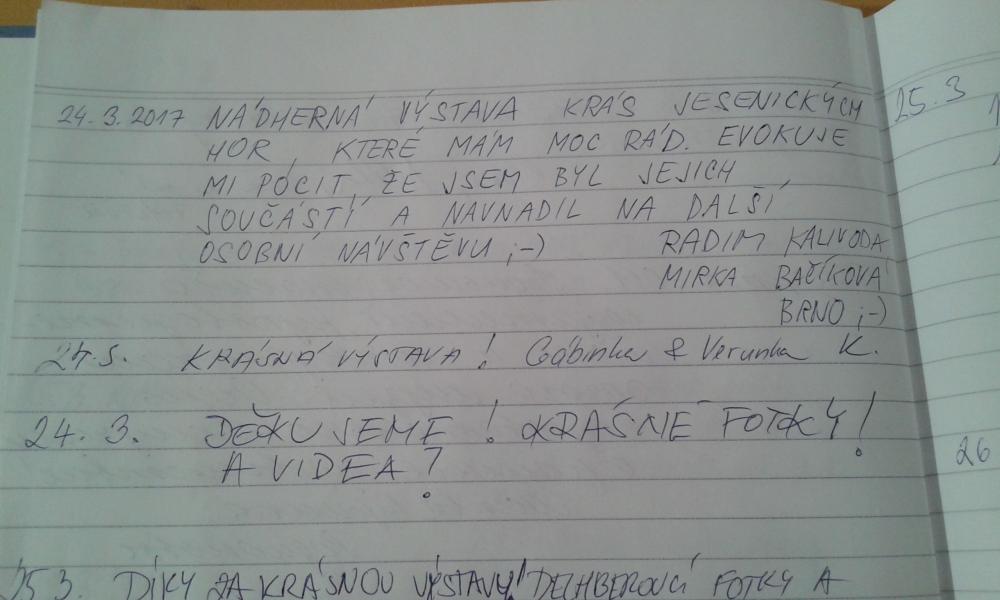 24.3.2017 NÁDHERNÁ VÝSTAVA KRÁS JESENICKÝCH
HOR, KTERÉ MÁM MOC RÁD. EVOKUJE
MI POCIT, ŽE JSEM BYL JEJICH
SOUČÁSTÍ A NAVNADIL NA DALŠÍ
OSOBNÍ NÁVŠTĚVU ;-) RADIM KALIVODA
MIRKA BAČÍKOVÁ
BRNO ;-)
KRÁSNÁ VÝSTAVA! Gábinka & Verunka K.
24. 3. DĚKUJEME! KRÁSNÉ FOTKY!
A VIDEA!
25 3. DÍKY ZA KRÁSNOU VÝSTAVU! DECHBEROUCÍ FOTKY A
25.3
26